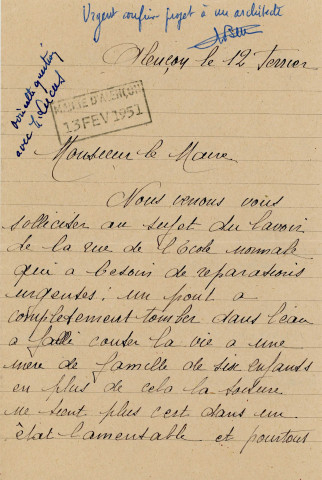 Urgent confier projet à un architecte
Alençon le 12 Fevrier
voir cette question
avec J. Lucas
MAIRIE D'ALENÇON
13 FEV 1951
Monsieur le Maire
Nous venons vous
solliciser au sujet du lavoir
de la rue de l'Ecole normale
qui a besoin de reparasions
urgenses: un pont a
completement tomber dans l'eau
a falli couter la vie a une
mère de famille de six enfants
en plus de cela la toiture
ne tient plus c'est dans un
état lamensable et pourtout